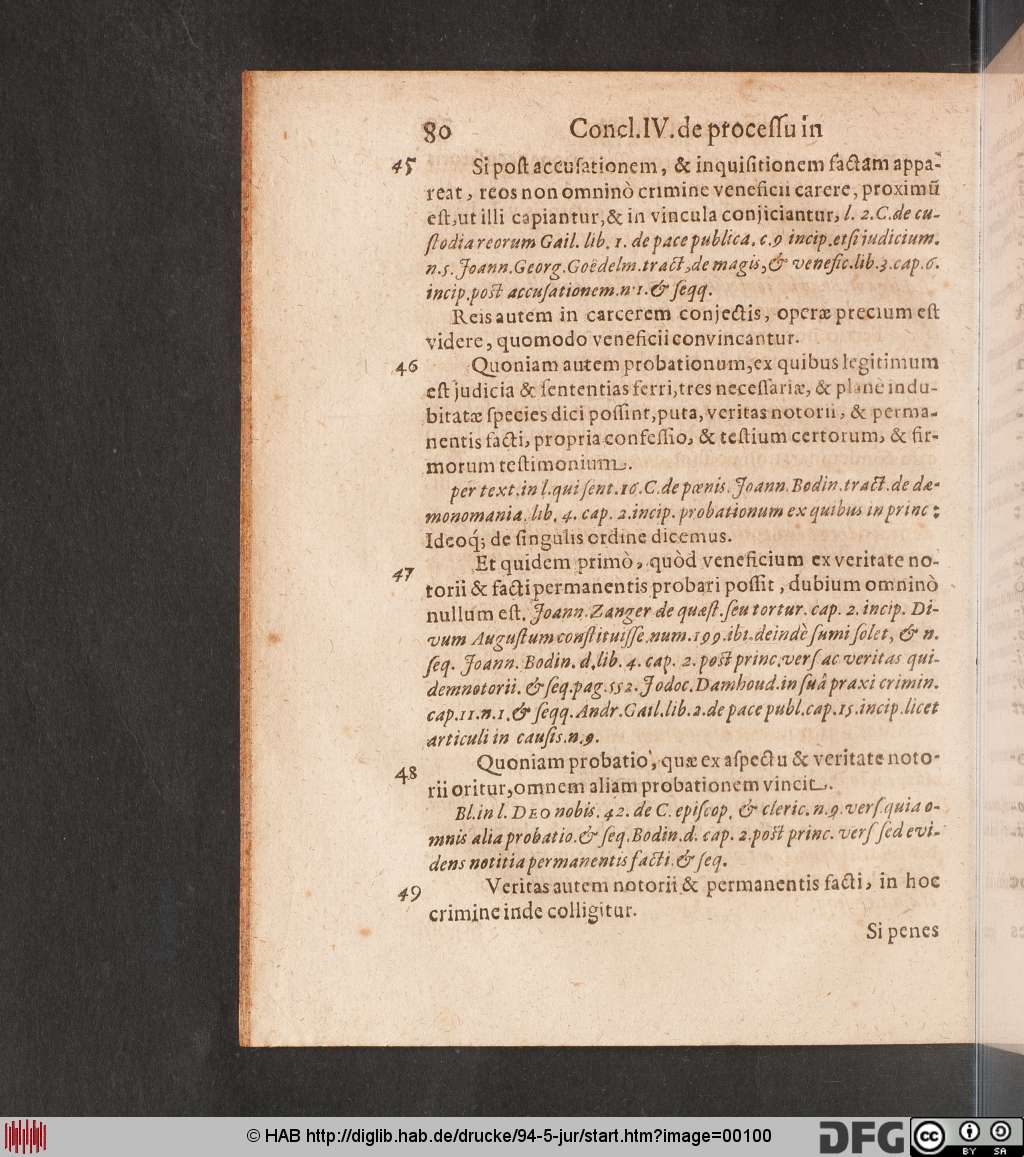 80 Concl.IV. de processu in
45 Si post accusationem, & inquisitionem factam appa-
reat, reos non omninò crimine veneficii carere, proximū
est, ut illi capiantur, & in vincula conjiciantur, l. 2. C. de cu-
stodia reorum Gail. lib. 1. de pace publica. c. 9 incip. etsi judicium.
n. 5. Joann. Georg. Goëdelm. tract, de magis, & venefic. lib. 3. cap. 6.
incip. post accusationem. n. 1. & seqq.
Reis autem in carcerem conjectis, operæ precium est
videre, quomodo veneficii convincantur.
46 Quoniam autem probationum, ex quibus legitimum
est judicia & sententias ferri, tres necessariæ, & planè indu-
bitatæ species dici possint, puta, veritas notorii, & perma-
nentis facti, propria confessio, & testium certorum, & fir-
morum testimonium.
per text. in l. qui sent. 16. C. de pœnis. Joann. Bodin. tract. de dæ-
monomania. lib. 4. cap. 2. incip. probationum ex quibus in princ:
Ideoq; de singulis ordine dicemus.
47 Et quidem primò, quòd veneficium ex veritate no-
torii & facti permanentis probari possit, dubium omninò
nullum est. Joann. Zanger de quæst. seu tortur. cap. 2. incip. Di-
vum Augustum constituisse. num. 199. ibi. deindè sumi solet, & n.
seq. Joann. Bodin. d. lib. 4. cap. 2. post princ. vers ac veritas qui-
dem notorii. & seq. pag. 552. Jodoc. Damhoud. in suâ praxi crimin.
cap. 11. n. 1. & seqq. Andr. Gail. lib. 2. de pace publ. cap. 15. incip licet
articuli in causis. n. 9.
48 Quoniam probatio, quæ ex aspectu & veritate noto-
rii oritur, omnem aliam probationem vincit.
Bl. in l. DEO nobis. 42. de C. episcop. & cleric. n. 9. vers. quia o-
mnis alia probatio. & seq. Bodin. d. cap. 2. post princ. vers sed evi-
dens notitia permanentis facti. & seq.
49 Veritas autem notorii & permanentis facti, in hoc
crimine inde colligitur.
Si penes
© HAB http://diglib.hab.de/drucke/94-5-jur/start.htm?image=00100
DFG
cc BY SA